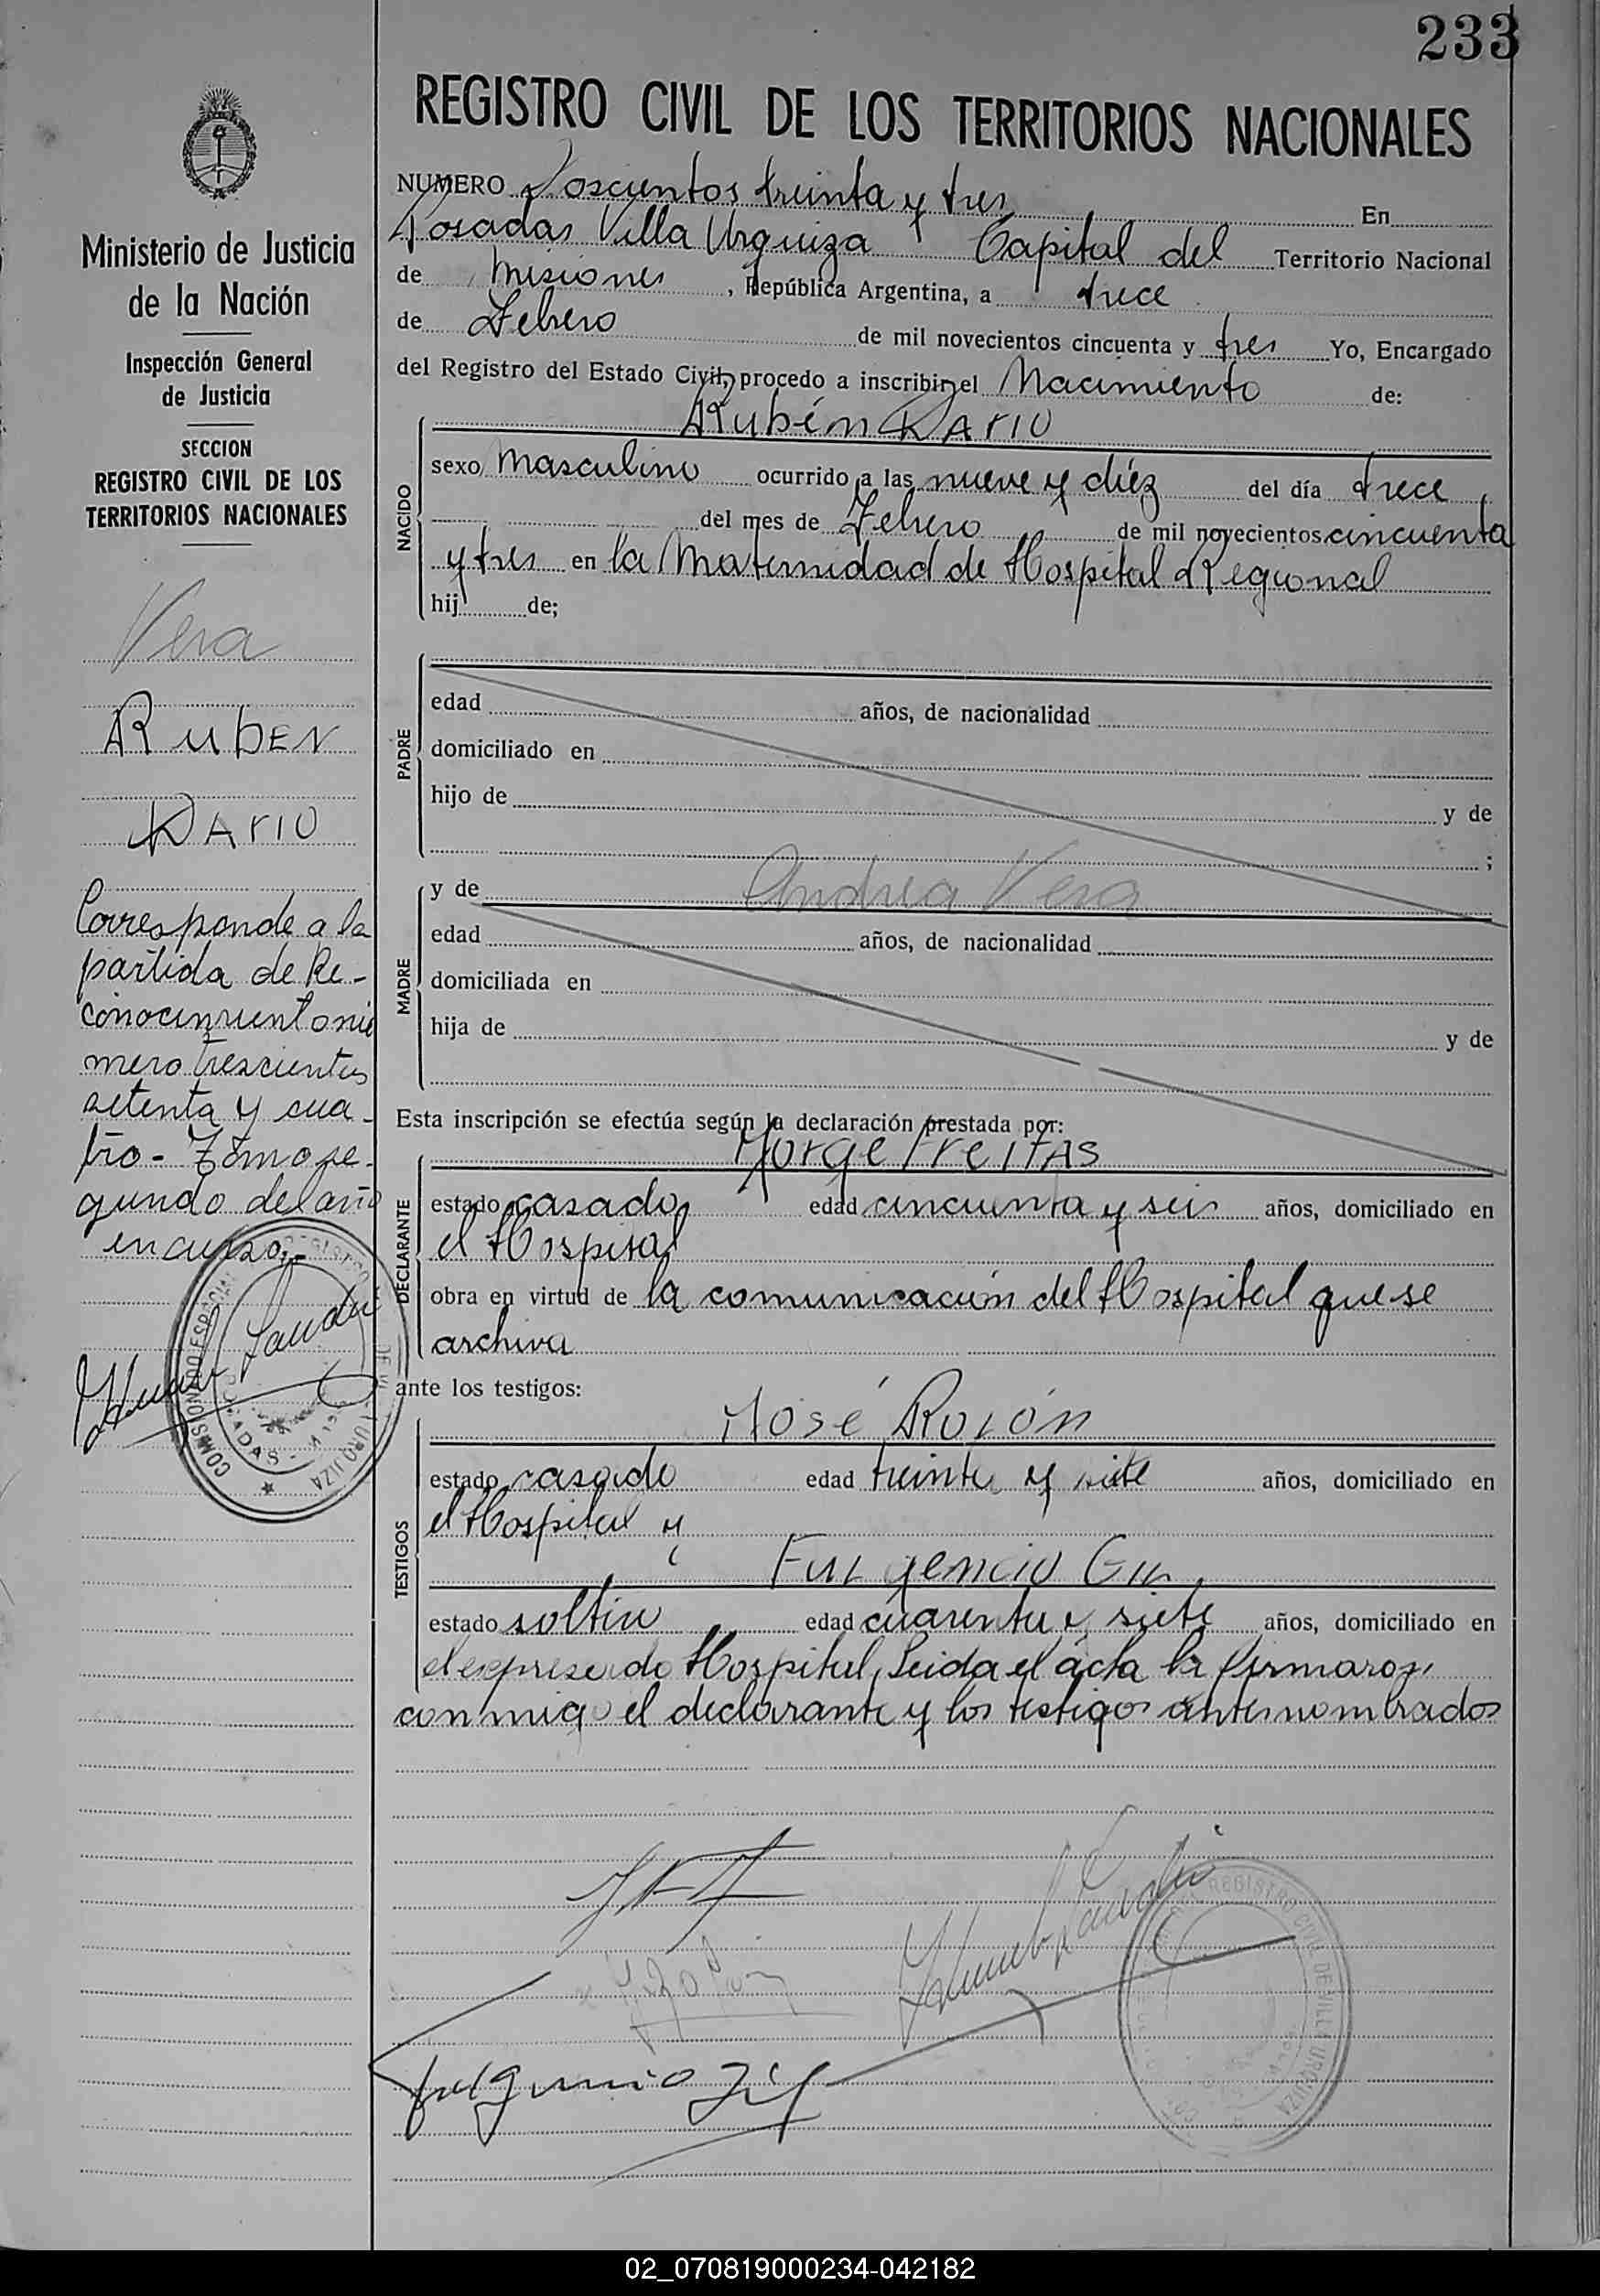 233
REGISTRO CIVIL DE LOS TERRITORIOS NACIONALES
NUMERO Doscientos treinta y tres En
Posadas Villa Urquiza Capital del Territorio Nacional
de Misiones, República Argentina, a trece
de Febrero de mil novecientos cincuenta y tres Yo, Encargado
del Registro del Estado Civil, procedo a inscribir el Nacimiento de:
NACIDO
Rubén Dario
sexo masculino ocurrido a las nueve y diéz del día trece
del mes de Febrero de mil novecientos cincuenta
y tres en la Maternidad de Hospital Regional
hij de;
PADRE
edad años, de nacionalidad
domiciliado en
hijo de y de
;
MADRE
y de Andrea Vera
edad años, de nacionalidad
domiciliada en
hija de y de
Esta inscripción se efectúa según la declaración prestada por:
DECLARANTE
Jorge Freitas
estado casado edad cincuenta y seis años, domiciliado en
el Hospital
obra en virtud de la comunicación del Hospital que se
archiva
ante los testigos:
TESTIGOS
José Rolón
estado casado edad treinta y siete años, domiciliado en
el Hospital y
Fulgencio Gil
estado soltero edad cuarenta y siete años, domiciliado en
el expresado Hospital, Leida el acta la firmaron
conmigo el declarante y los testigos antes nombrados
Fulgencio Gil
Ministerio de Justicia
de la Nación
Inspección General
de Justicia
SECCION
REGISTRO CIVIL DE LOS
TERRITORIOS NACIONALES
Vera
Ruben
Dario
Corresponde a la
partida de Re-
conocimiento nú
mero trescientos
setenta y cua-
tro - Tomo se-
gundo del año
en curso.-
02_070819000234-042182